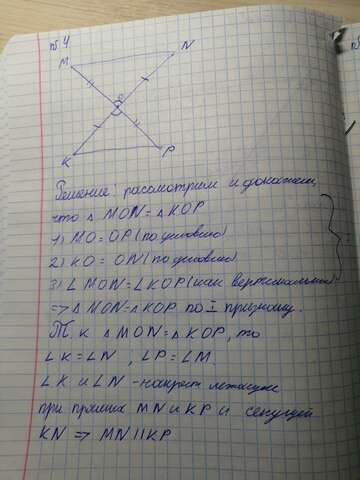 №4
M N
O
K P
Решение: рассмотрим и докажем,
что △ MON = △ KOP
1) MO = OP (по условию)
2) KO = ON (по условию)
3) ∠ MON = ∠ KOP (как вертикальные)
=> △ MON = △ KOP по I признаку.
Т.к △ MON = △ KOP, то
∠K = ∠N , ∠P = ∠M.
∠K и ∠N - накрест лежащие
при прямых MN и KP и секущей
KN => MN || KP